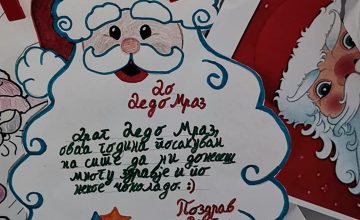 До
Дедо Мраз
Драг Дедо Мраз,
оваа година посакувам
на сите да ни донесеш
многу здравје и по
некое чоколадо. :)
Поздрав